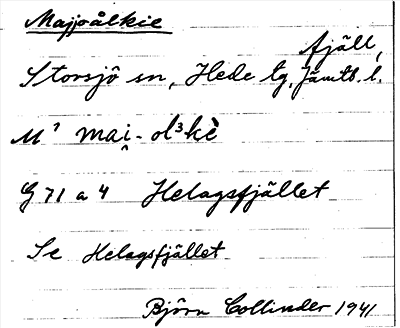 Majjoålkie
fjäll,
Storsjö sn, Hede tg, Jämtb. l.
M¹ mai̯- ol³kè
G 71 a 4 Helagsfjället
Se Helagsfjället
Björn Collinder 1941